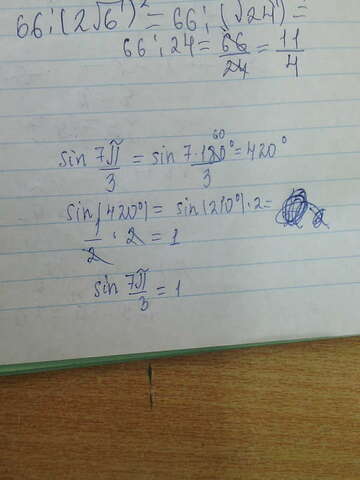 66:(2√6)² = 66:(√24) =
66:24 = 66/24 = 11/4
sin 7π/3 = sin 7·180°/3 = 420°
60
sin(420°) = sin(210°)·2 =
1/2 · 2 = 1
sin 7π/3 = 1